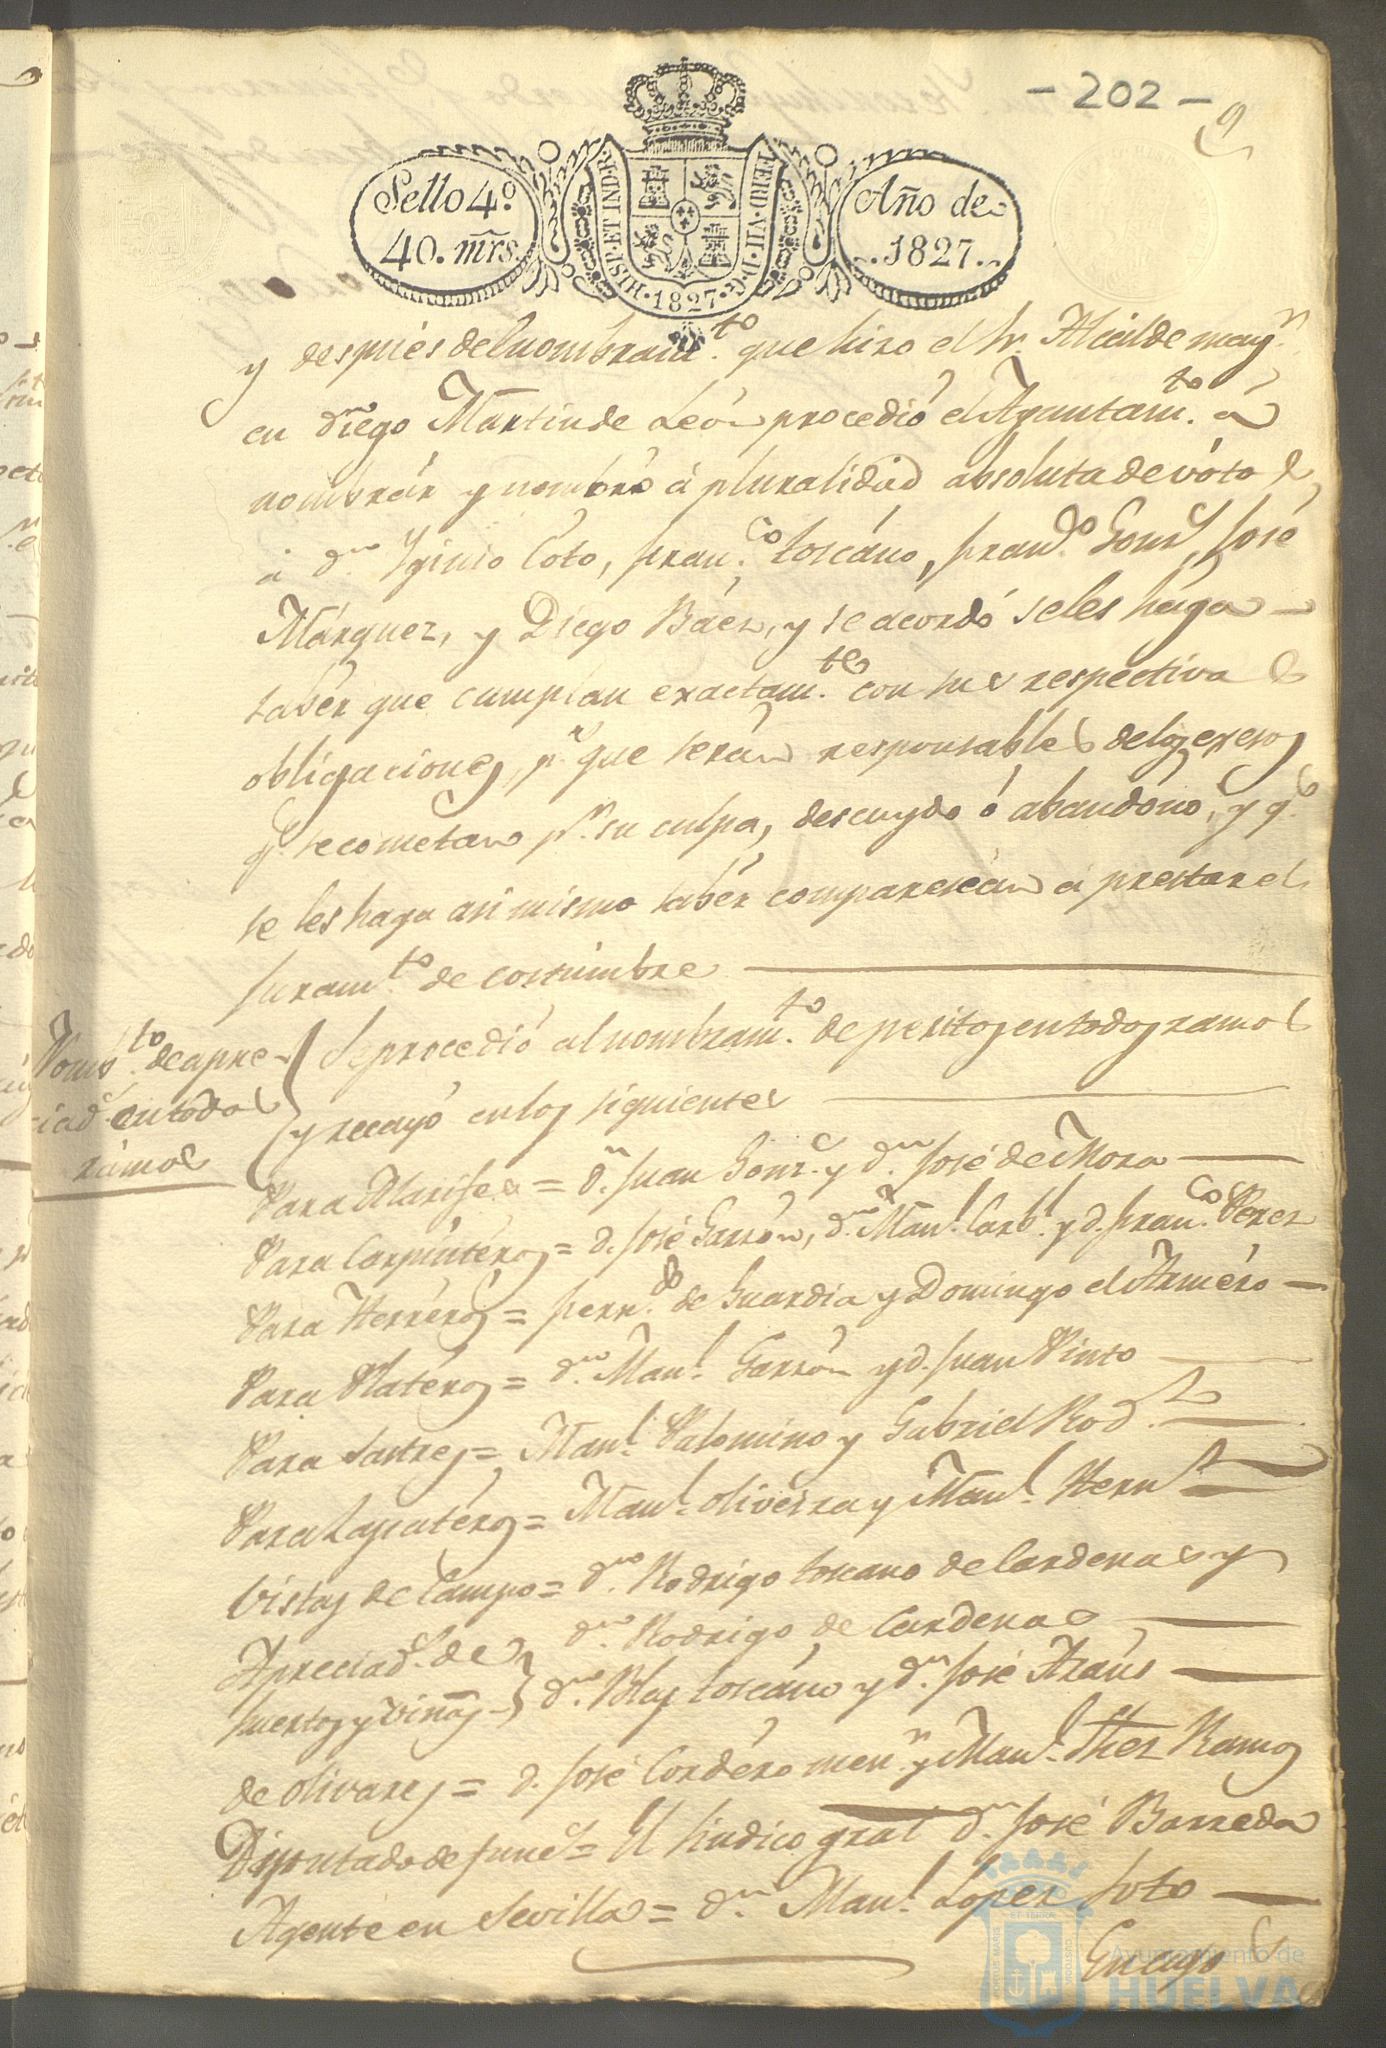 - 202 -
9
Sello 4º
40. mrs.
HISP. ET IND. R.
FERD. VII. D. G.
1827
Año de
1827.
y despues del nombram.to que hizo el Sr. Alcalde may.r
en Diego Martin de Leon procedió el Ayuntam.to á
nombrár y nombró á pluralidad absoluta de votos
á d.n Yginio Coto, Fran.co Toscáno, Fran.co Gonz.z José
Márquez, y Diego Báez, y se acordó se les hága
sabér que cumplan exactam.te con sus respectivas
obligaciones, p.r que serán responsables de los exesos
q.e se cometan p.r su culpa, descuydo ó abandóno, y q.e
se les haga asi mismo sabér comparescán á prestar el
Juram.to de costúmbre
Nomb.to de apre-
ciad.s en todos
rámos
Se procedió al nombram.to de peritos en todos ramos
y recayó en los siguientes
Para Alarifes = d.n Juan Gonz.z y d.n José de Mora
Para Carpintéros = d. José Garzón, d.n Man.l Carb.l y d. Fran.co Perez
Para Herréros = Fern.do de Guardia y Domingo el Arméro
Para Platéros = d.n Man.l Garzón y d. Juan Pinto
Para Sastres = Man.l Palomino y Gabriel Rod.z
Para Zapatéros = Man.l Oliveira y Man.l Hern.z
Vistas de Campo = d.n Rodrigo Toscano de Cardenas y
d.n Rodrigo de Cardenas
Apreciad.s de
huertos y viñas } d.n Blas Toscáno y d.n José Azáus
de olivares = d. José Cordéro men.r y Man.l Shez Ramos
Diputado de = El Sindico gral d.n José Barreda
Agente en Sevilla = d.n Man.l Lopez Soto
En cuyo
Ayuntamiento de
HUELVA